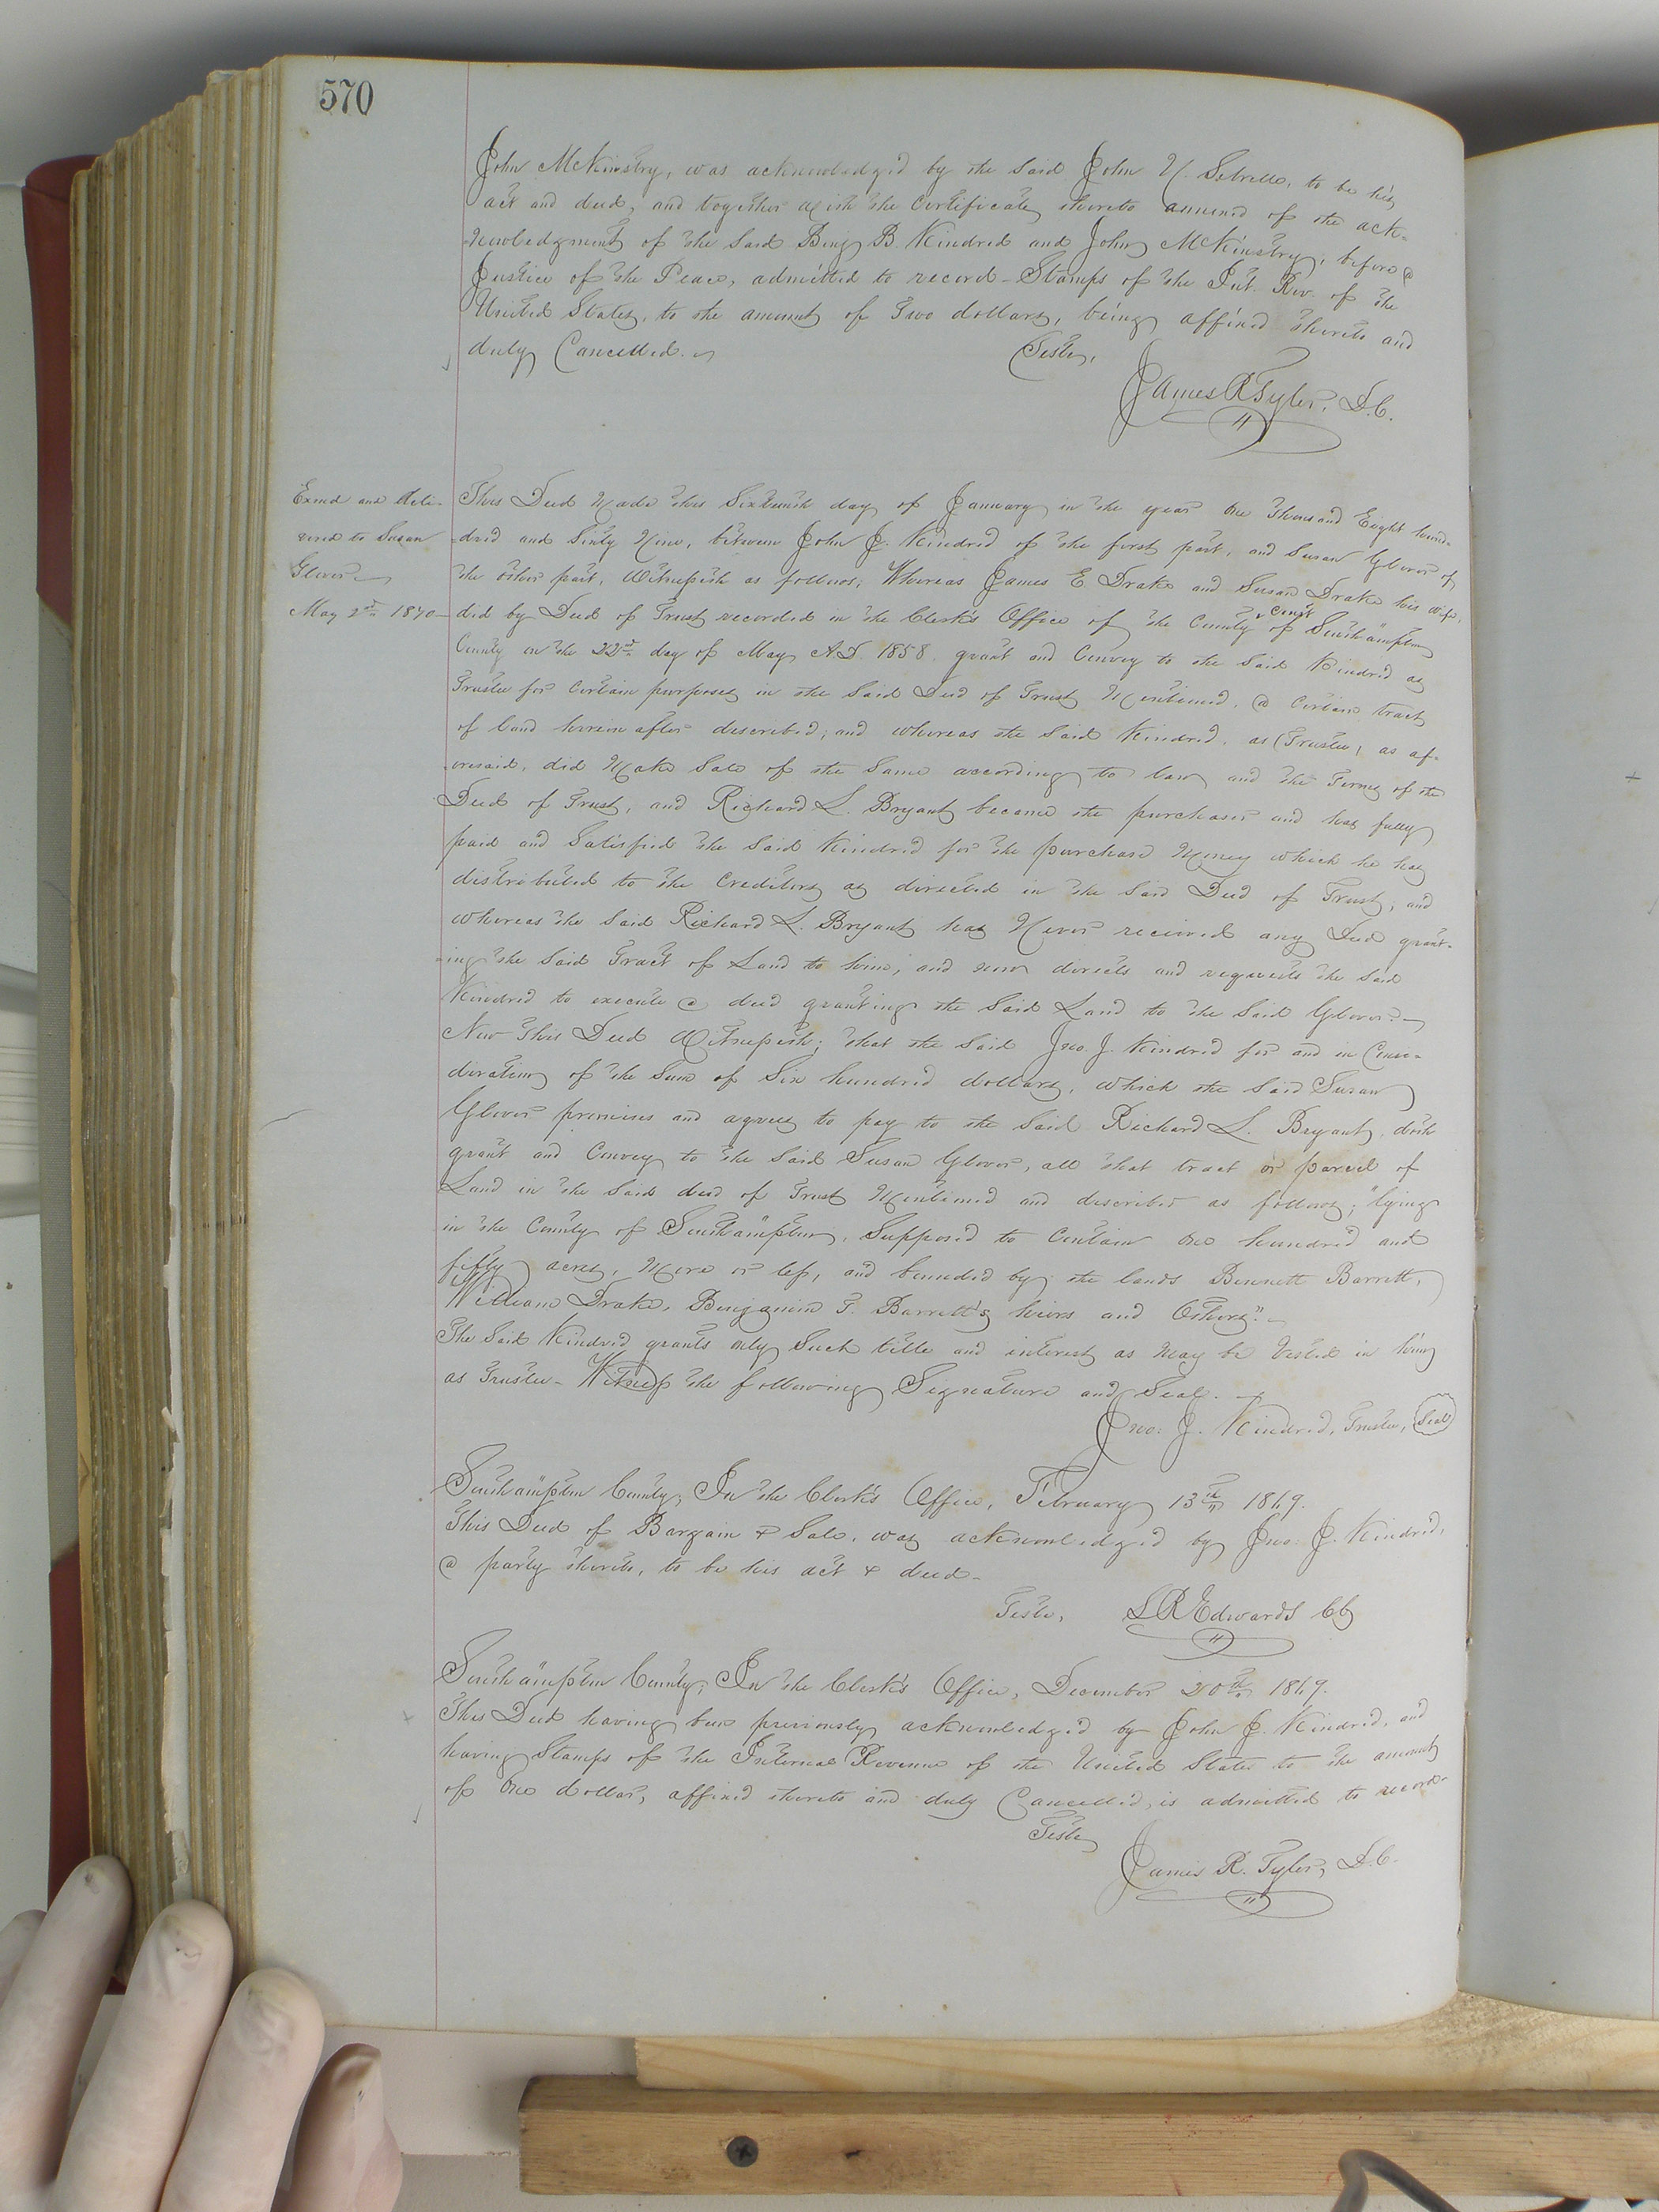 570
John McKinstry, was acknowledged by the said John N. Sebrelle, to be his
act and deed, and together with the Certificate thereto annexed of the ack-
nowledgment of the said Benj B. Kindred and John McKinstry, before a
Justice of the Peace, admitted to record - Stamps of the Int. Rev. of the
United States, to the amount of Two dollars, being affixed thereto and
duly Cancelled.
Teste,
James R Tyler, D.C.
Exmd and deli-
vered to Susan
Glover
May 2nd 1870
This Deed Made this Sixteenth day of January in the year one thousand Eight hund-
dred and Sixty Nine, between John J. Kindred of the first part, and Susan Glover of
the other part, Witnesseth as follows; Whereas James E Drake and Susan Drake his wife,
did by Deed of Trust recorded in the Clerk's Office of the County Court of Southampton
County on the 22nd day of May A.D. 1858 grant and Convey to the said Kindred as
Trustee for Certain purposes in the said Deed of Trust Mentioned, a Certain tract
of land herein after described; and whereas the said Kindred, as Trustee, as af-
oresaid, did Make Sale of the same according to law and the Terms of the
Deed of Trust, and Richard L. Bryant became the purchaser and has fully
paid and Satisfied the said Kindred for the purchase Money which he has
distributed to the Creditors as directed in the said Deed of Trust; and
whereas the said Richard L. Bryant has Never received any Deed grant-
ing the said Tract of Land to him; and now directs and requests the said
Kindred to execute a deed granting the said Land to the said Glover.
Now This Deed Witnesseth; that the said Jno. J. Kindred for and in Consi-
deration of the Sum of Six hundred dollars, which the said Susan
Glover promises and agrees to pay to the said Richard L. Bryant, doth
grant and Convey to the said Susan Glover, all that tract or parcel of
Land in the said deed of Trust Mentioned and described as follows; "lying
in the County of Southampton, Supposed to Contain one hundred and
fifty acres, More or less, and bounded by the lands Bennett Barrett,
William Drake, Benjamin T. Barrett's heirs and Others."
The said Kindred grants only Such title and interest as May be Vested in him
as Trustee - Witness the following Signature and Seal.
Jno. J. Kindred, Trustee, Seal
Southampton County; In the Clerk's Office, February 13th 1869.
This Deed of Bargain & Sale, was acknowledged by Jno. J. Kindred,
a party thereto, to be his act & deed -
Teste, L R Edwards Clk
Southampton County; In the Clerk's Office, December 20th 1869.
This Deed having been previously acknowledged by John J. Kindred, and
having Stamps of the Internal Revenue of the United States to the amount
of One dollar, affixed thereto and duly Cancelled, is admitted to record -
Teste
James R. Tyler, D.C.